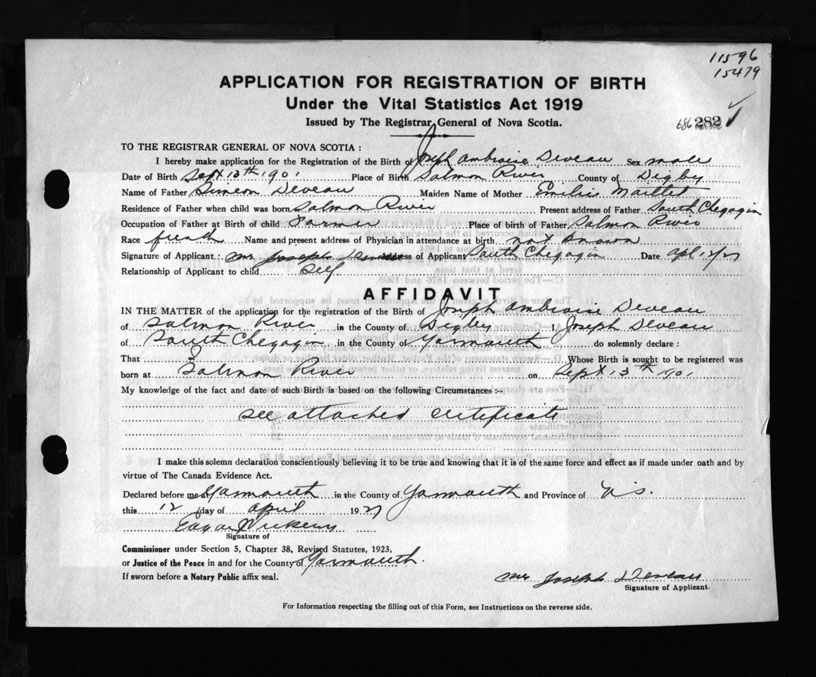 11596
15479
APPLICATION FOR REGISTRATION OF BIRTH
Under the Vital Statistics Act 1919
Issued by The Registrar General of Nova Scotia.
686 282 ✓
TO THE REGISTRAR GENERAL OF NOVA SCOTIA :
I hereby make application for the Registration of the Birth of Joseph Ambroise Deveau Sex male
Date of Birth Sept 13th 1901 Place of Birth Salmon River County of Digby
Name of Father Simeon Deveau Maiden Name of Mother Emilie Maillet
Residence of Father when child was born Salmon River Present address of Father South Chegogin
Occupation of Father at Birth of child Farmer Place of birth of Father Salmon River
Race french Name and present address of Physician in attendance at birth not known
Signature of Applicant : Mr Joseph Deveau Address of Applicant South Chegogin Date Apl 12/27
Relationship of Applicant to child Self
AFFIDAVIT
IN THE MATTER of the application for the registration of the Birth of Joseph Ambroise Deveau
of Salmon River in the County of Digby I, Joseph Deveau
of South Chegogin in the County of Yarmouth do solemnly declare :
That I Whose Birth is sought to be registered was
born at Salmon River on Sept 13th 1901
My knowledge of the fact and date of such Birth is based on the following Circumstances :-
See attached certificate
I make this solemn declaration conscientiously believing it to be true and knowing that it is of the same force and effect as if made under oath and by
virtue of The Canada Evidence Act.
Declared before me at Yarmouth in the County of Yarmouth and Province of N.S.
this 12 day of April 1927
Signature of
Commissioner under Section 5, Chapter 38, Revised Statutes, 1923,
or Justice of the Peace in and for the County of Yarmouth.
If sworn before a Notary Public affix seal.
Mr Joseph Deveau
Signature of Applicant.
For Information respecting the filling out of this Form, see Instructions on the reverse side.